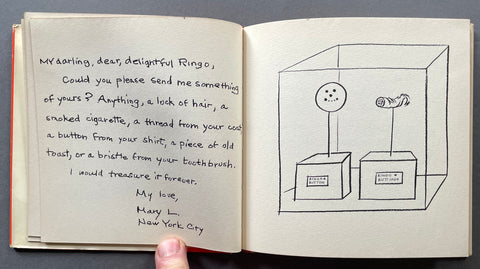 My darling, dear, delightful Ringo,
Could you please send me something
of yours? Anything, a lock of hair, a
smoked cigarette, a thread from your coat
a button from your shirt, a piece of old
toast, or a bristle from your toothbrush.
I would treasure it forever.
My love,
Mary L.
New York City
RINGO'S
BUTTON
RINGO'S
BUTT